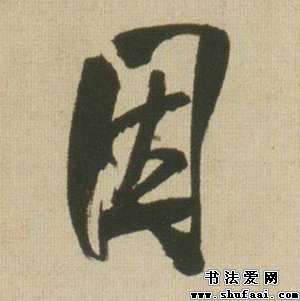 因
书法爱网
www.shufaai.com